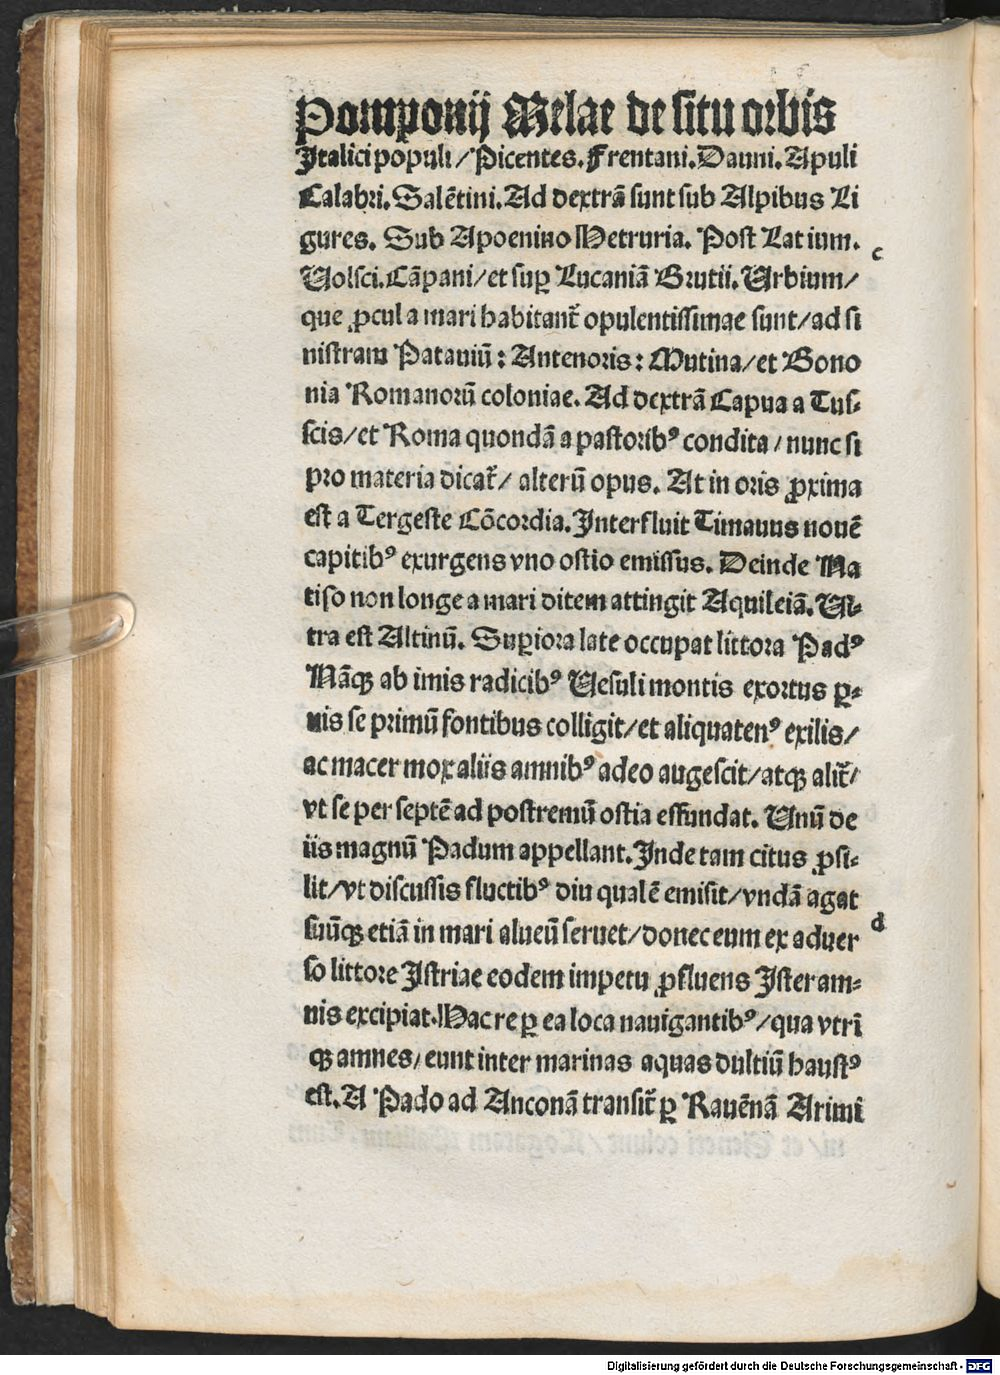 Pomponij Melae de situ orbis
Italici populi/Picentes. Frentani. Dauni. Apuli
Calabri. Salētini. Ad dextrā sunt sub Alpibus Li
gures. Sub Apoenino Hetruria. Post Latium.
c
Uolsci. Cāpani/et suꝑ Lucaniā Brutii. Urbium/
que ꝓcul a mari habitant᷑ opulentissimae sunt/ad si
nistram Patauiū: Antenoris: Mutina/et Bono
nia Romanorū coloniae. Ad dextrā Capua a Tus⸗
scis/et Roma quondā a pastoribꝰ condita/nunc si
pro materia dicat᷑/ alterū opus. At in oris ꝓxima
est a Tergeste Cōcordia. Interfluit Timauus nouē
capitibꝰ exurgens vno ostio emissus. Deinde Na
tiso non longe a mari ditem attingit Aquileiā. Ul⸗
tra est Altinū. Suꝑiora late occupat littora Padꝰ
Nāqꝫ ab imis radicibꝰ Uesuli montis exortus ꝑ⸗
uis se primū fontibus colligit/et aliquatenꝰ exilis/
ac macer mox aliis amnibꝰ adeo augescit/atqꝫ alit᷑/
vt se per septē ad postremū ostia effundat. Unū de
iis magnū Padum appellant. Inde tam citus ꝓsi⸗
lit/vt discussis fluctibꝰ diu qualē emisit/vndā agat
d
suūqꝫ etiā in mari alueū seruet/donec eum ex aduer
so littore Istriae eodem impetu ꝓfluens Ister am⸗
nis excipiat. Hac re ꝑ ea loca nauigantibꝰ/qua vtrī
qꝫ amnes/eunt inter marinas aquas dultiū haustꝰ
est. A Pado ad Anconā transit᷑ ꝑ Rauēnā Arimi
Digitalisierung gefördert durch die Deutsche Forschungsgemeinschaft - DFG